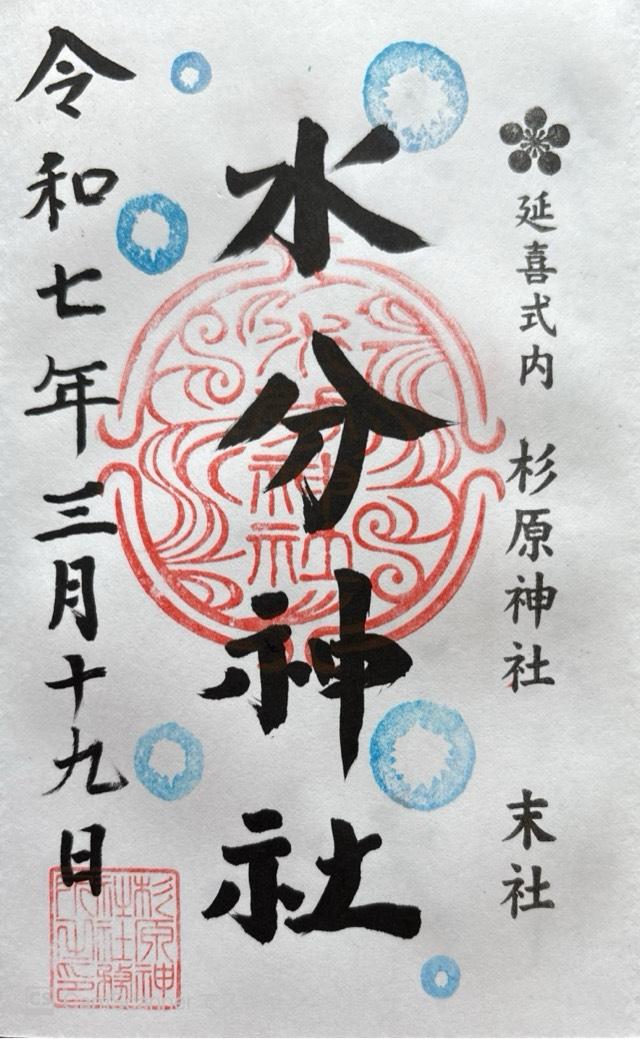 延喜式内 杉原神社 末社
水分神社
水分神社
令和七年三月十九日
杉原神社社務所之印